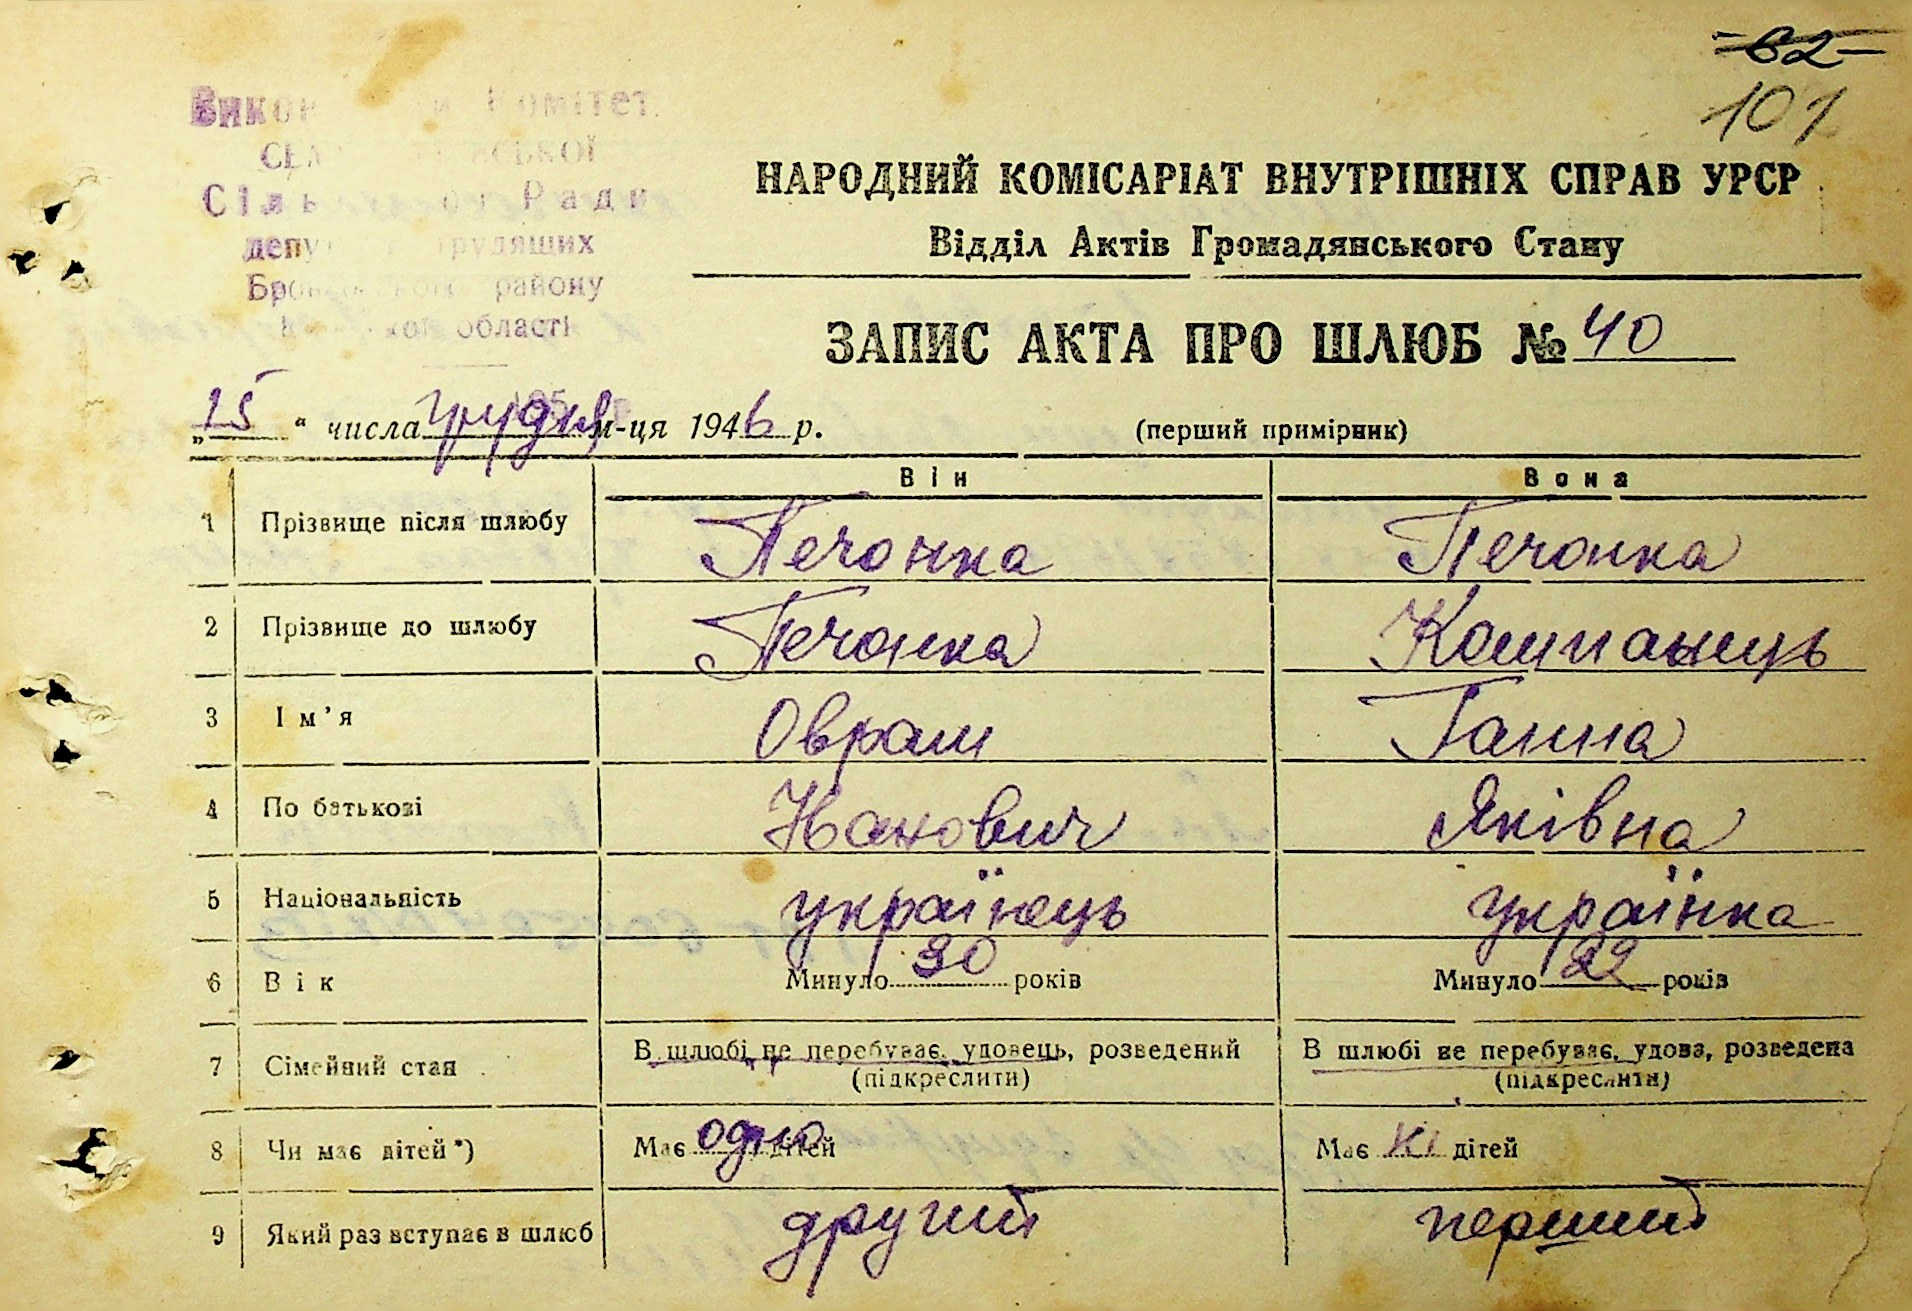 -62-
101
Комітет
Ради
трудящих
району
області
НАРОДНИЙ КОМІСАРІАТ ВНУТРІШНІХ СПРАВ УРСР
Відділ Актів Громадянського Стану
ЗАПИС АКТА ПРО ШЛЮБ № 40
„ 25 “ числа грудня м-ця 1946 р. (перший примірник)
Він Вона
1 Прізвище після шлюбу Печонка Печонка
2 Прізвище до шлюбу Печонка Компанець
3 Ім’я Оврам Ганна
4 По батькові Іванович Яківна
5 Національність українець українка
6 Вік Минуло 30 років Минуло 22 років
7 Сімейний стан В шлюбі не перебуває, удовець, розведений В шлюбі не перебуває, удова, розведена
(підкреслити) (підкреслити)
8 Чи має дітей*) Має одно дітей Має ні дітей
9 Який раз вступає в шлюб другий перший